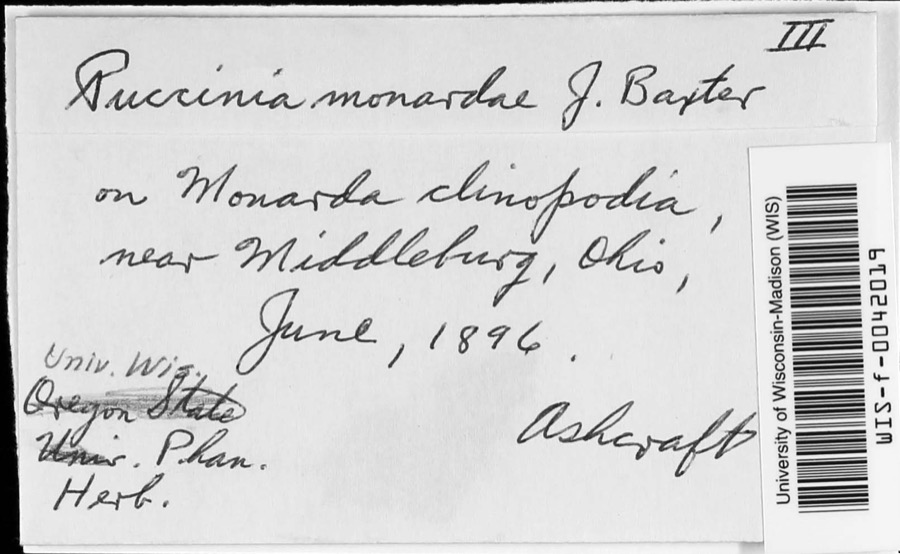 III
Puccinia monardae J. Baxter
on Monarda clinopodia,
near Middleburg, Ohio,
June, 1896.
Univ. Wis.
Oregon State
Univ. Phan.
Herb.
Ashcraft
University of Wisconsin-Madison (WIS)
WIS-f-0042019